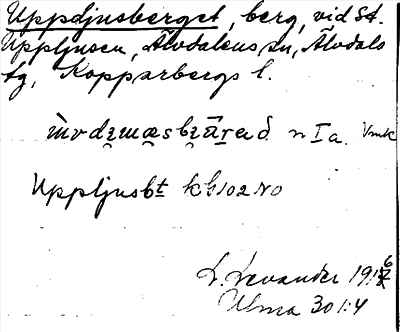 Uppdjusberget, berg, vid St.
Uppljusen, Älvdalens sn, Älvdals
tg, Kopparbergs l.
n Ia. Vmk
Uppljusbt kb 102 NO
L. Levander 1916
Ulma 301:4